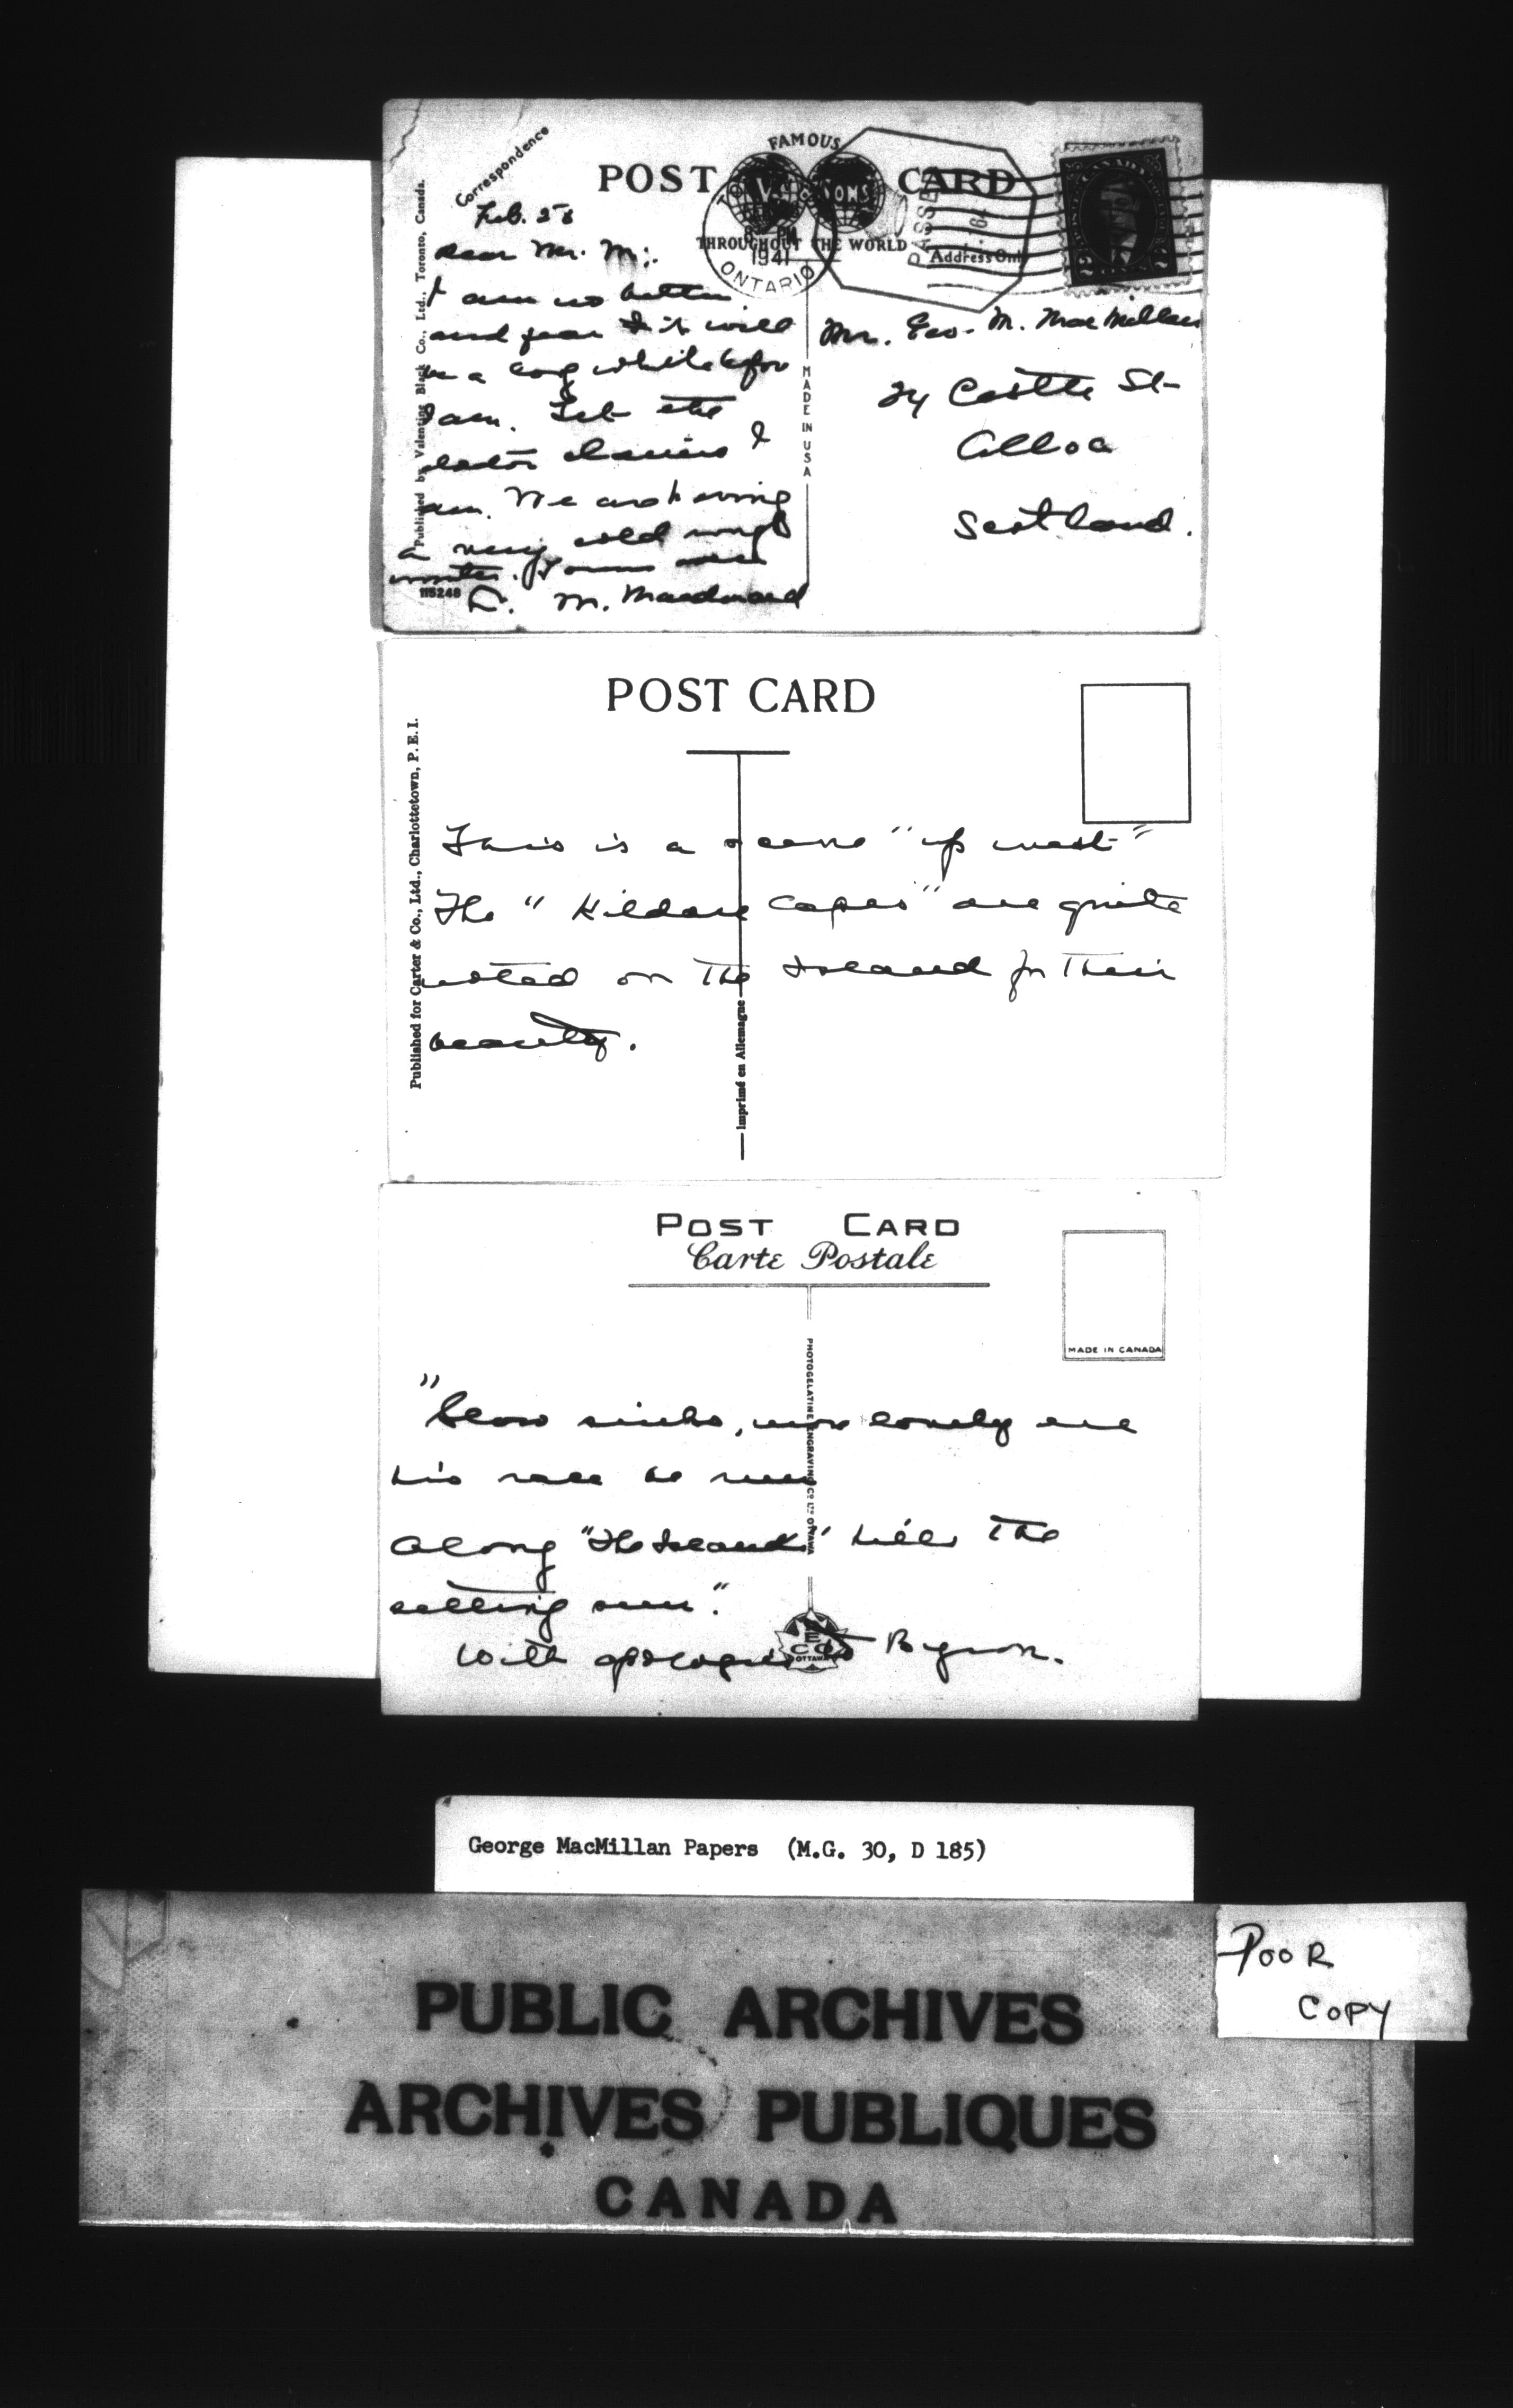 Correspondence
FAMOUS
POST CARD
THROUGHOUT THE WORLD
Address Only
PASSED
1941
ONTARIO
CANADA
2 2
Published by Valentine Black Co., Ltd., Toronto, Canada.
MADE IN USA
115248
Feb. 28
Dear Mr. M:.
I am no better
and fear it will
be a long while before
I am. Yet the
doctor claims I
am. We are having
a very cold rough
winter. Yours ever
L. M. Macdonald
Mr. Geo. M. MacMillan
24 Castle St
Alloa
Scotland.
POST CARD
Published for Carter & Co., Ltd., Charlottetown, P. E. I.
Imprimé en Allemagne
This is a scene "up west"
The "Kildare Capes" are quite
noted on the Island for their
beauty.
POST CARD
Carte Postale
MADE IN CANADA
PHOTOGELATINE ENGRAVING CO. LTD. OTTAWA
"Slow sinks, more lovely ere
his race be run
Along "The Island" hills the
setting sun".
With apologies to Byron.
PECO
OTTAWA
George MacMillan Papers (M.G. 30, D 185)
POOR
COPY
PUBLIC ARCHIVES
ARCHIVES PUBLIQUES
CANADA